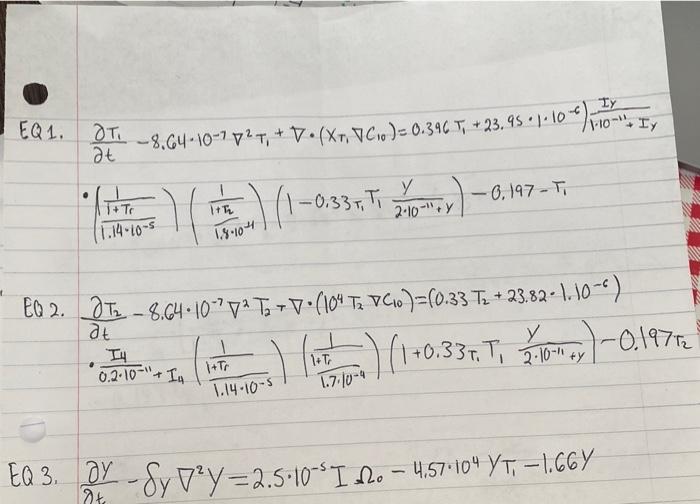 EQ 1. ∂T₁/∂t - 8.64·10⁻⁷ ∇²T₁ + ∇·(X_T₁ ∇C₁₀) = 0.396 T₁ + 23.95·1·10⁻⁶) I_y/(1·10⁻¹¹ + I_y)
·((1/(1+Tr))/(1.14·10⁻⁵)) ((1/(1+T₂))/(1.8·10⁻⁴)) (1 - 0.33_T₁ T₁ y/(2·10⁻¹¹ + y)) - 0.197 - T₁
EQ 2. ∂T₂/∂t - 8.64·10⁻⁷ ∇² T₂ + ∇·(10⁴ T₂ ∇C₁₀) = (0.33 T₂ + 23.82·1.10⁻⁶)
· I₄/(0.2·10⁻¹¹ + I₄) ((1/(1+Tr))/(1.14·10⁻⁵)) ((1/(1+Tr))/(1.7·10⁻⁴)) (1 + 0.33_T₁ T₁ y/(2·10⁻¹¹ + y)) - 0.197 T₂
EQ 3. ∂Y/∂t - δy ∇²Y = 2.5·10⁻⁵ I Ω₀ - 4.57·10⁴ Y T₁ - 1.66Y